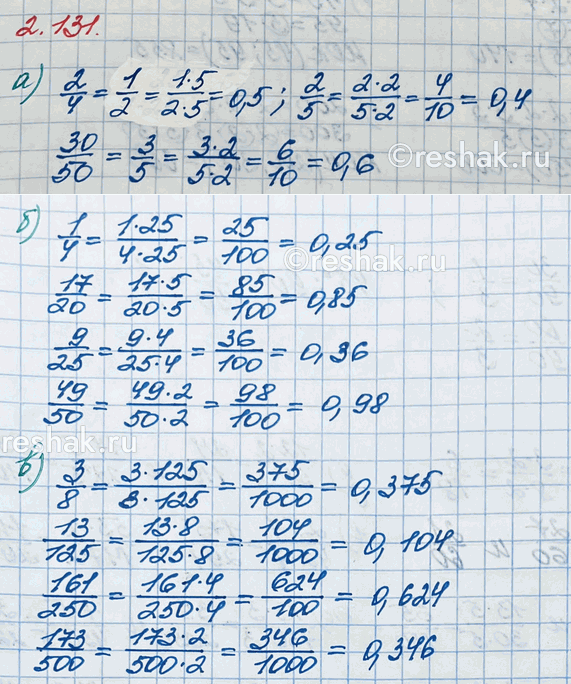 2.131.
а) 2/4 = 1/2 = 1·5/2·5 = 0,5; 2/5 = 2·2/5·2 = 4/10 = 0,4
30/50 = 3/5 = 3·2/5·2 = 6/10 = 0,6
©reshak.ru
б) 1/4 = 1·25/4·25 = 25/100 = 0,25
©reshak.ru
17/20 = 17·5/20·5 = 85/100 = 0,85
9/25 = 9·4/25·4 = 36/100 = 0,36
49/50 = 49·2/50·2 = 98/100 = 0,98
©reshak.ru
в) 3/8 = 3·125/8·125 = 375/1000 = 0,375
13/125 = 13·8/125·8 = 104/1000 = 0,104
161/250 = 161·4/250·4 = 624/100 = 0,624
173/500 = 173·2/500·2 = 346/1000 = 0,346